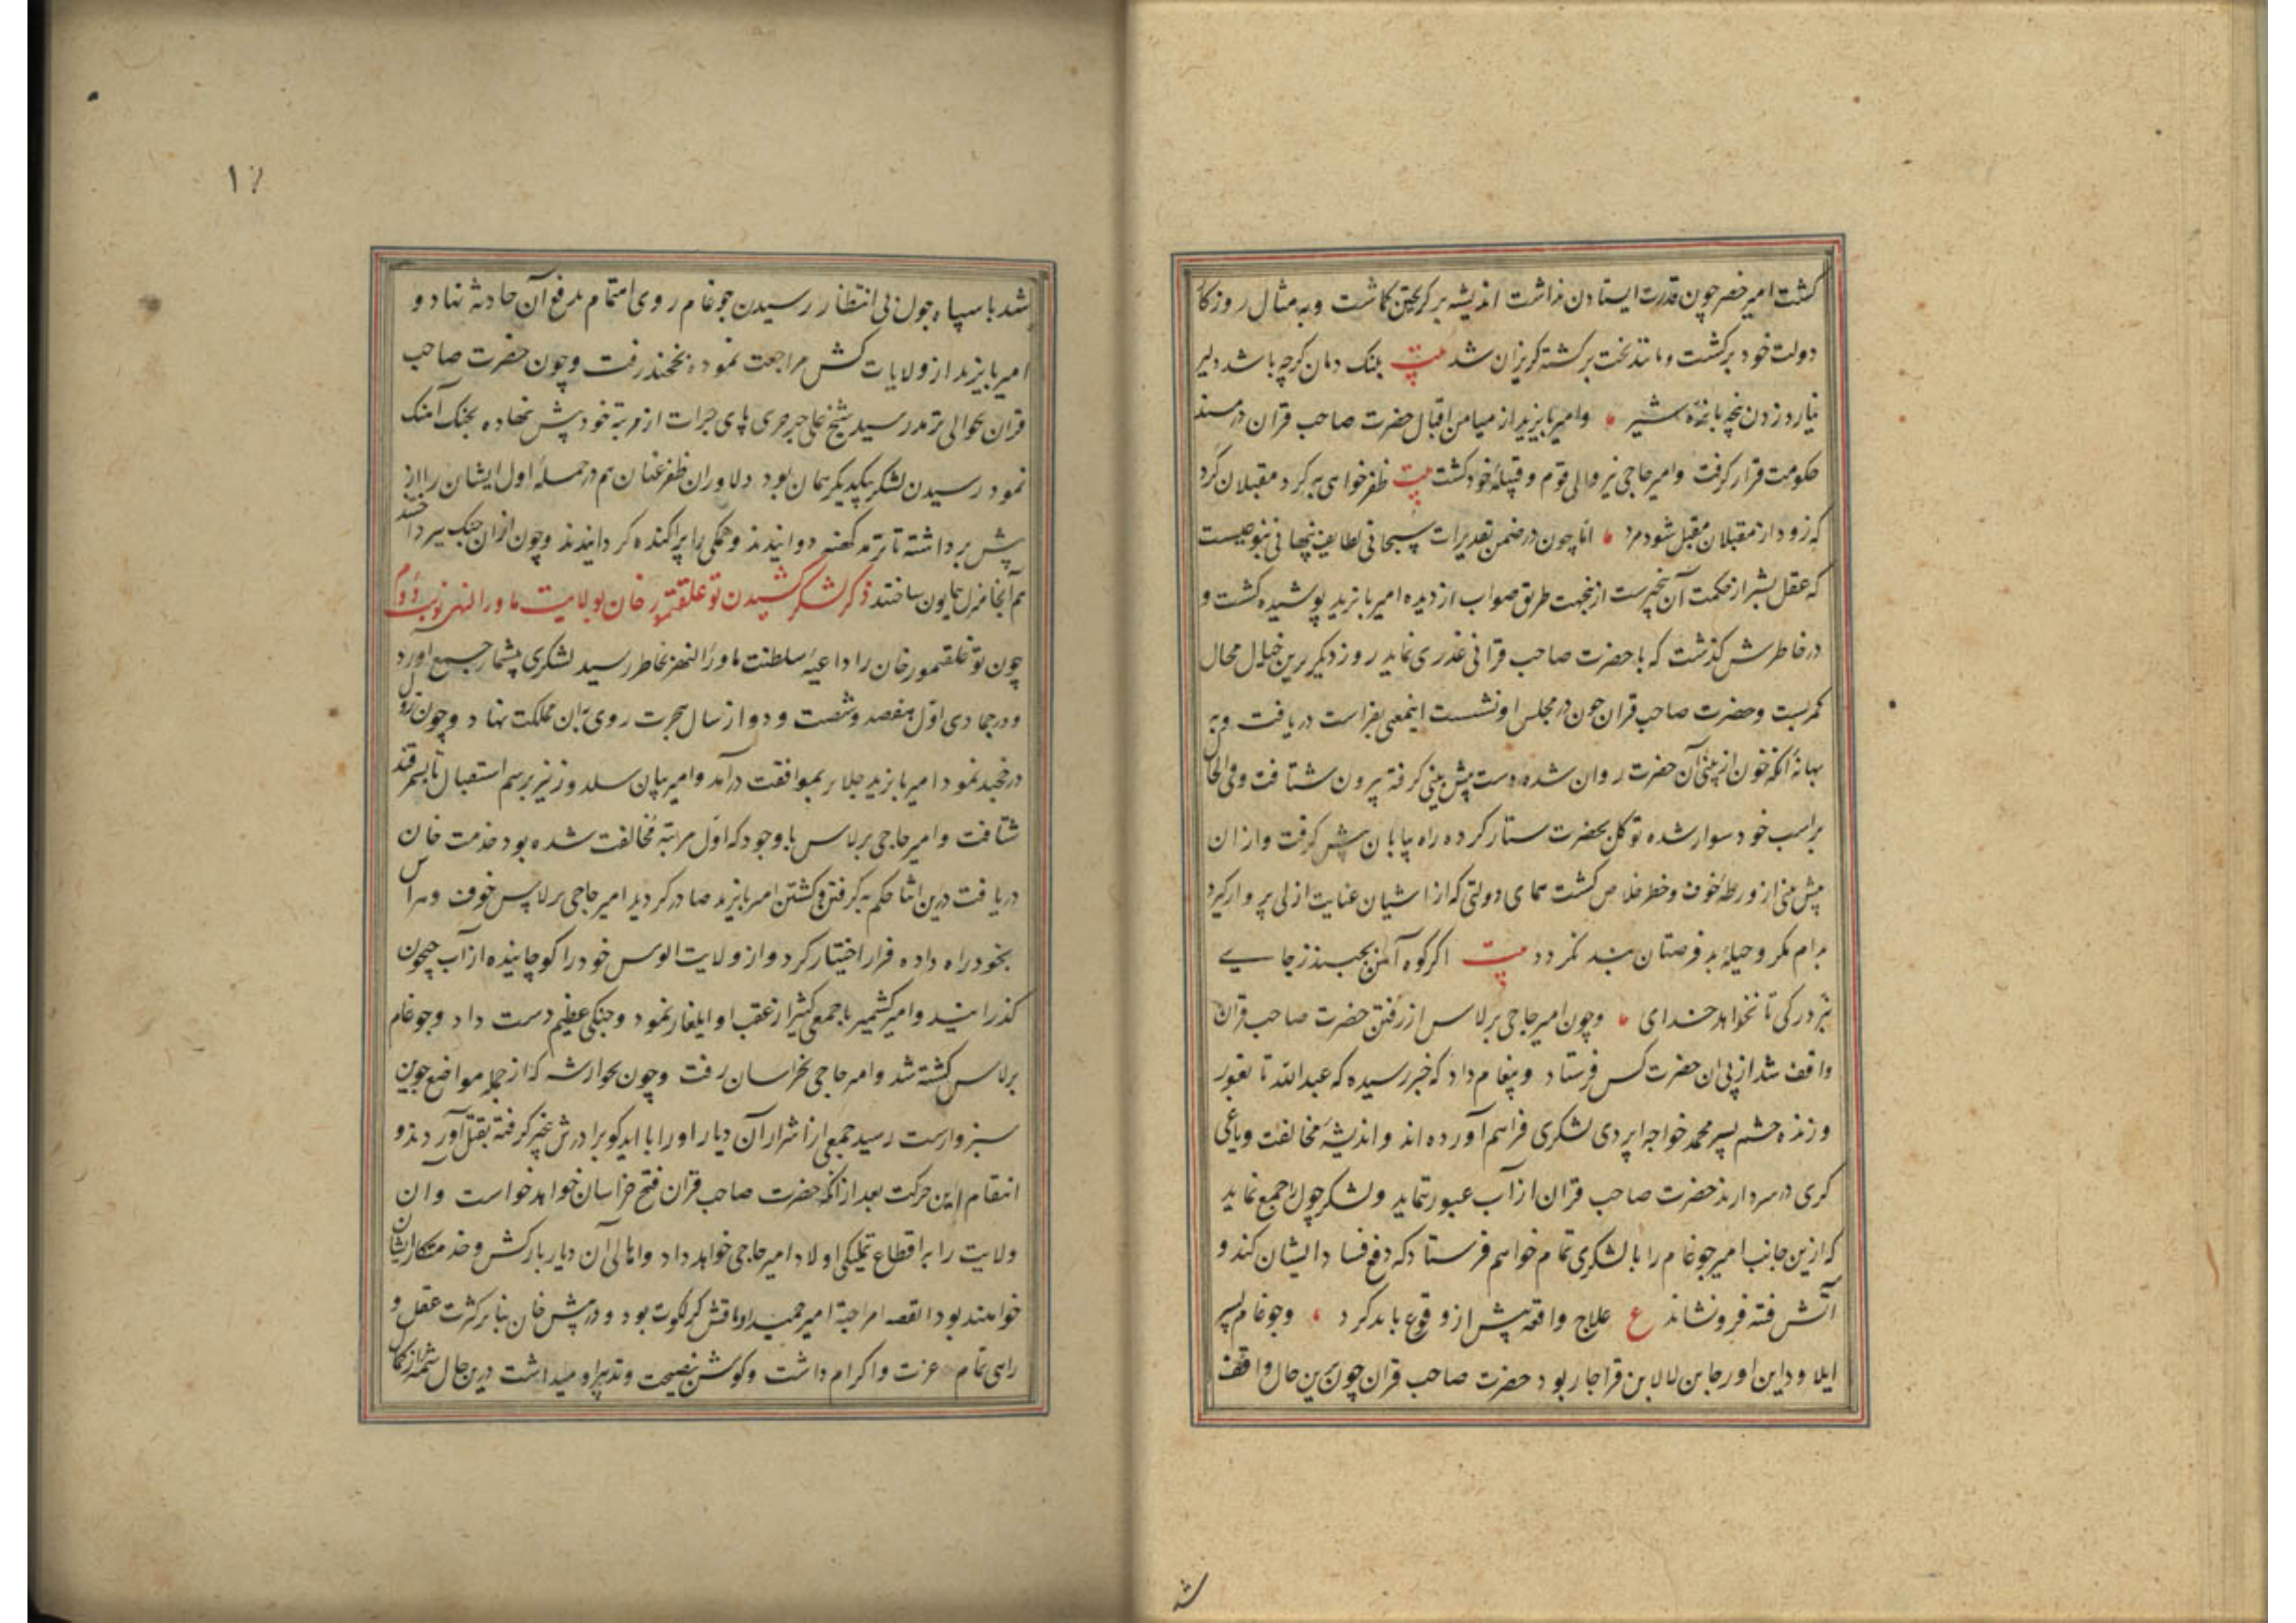 کشت امیر خضر چون قدرت ایستادن نداشت اندیشه بر کریختن کماشت و به مثال روزکار
دولت خود برکشت و مانند بخت برکشته کریزان شد بیت پلنک دمان کرچه باشد دلیر
نیارد زدن پنجه با نره شیر وامیر بایزید از میامن اقبال حضرت صاحب قران در مسند
حکومت قرار کرفت وامیر حاجی نیز والی قوم و قبیله خود کشت بیت ظفر خواهی به کرد مقبلان کرد
که زود از مقبلان مقبل شود مرد اما چون در ضمن تقدیرات سبحانی لطایف پنهانی
که عقل بشر از حکمت آن بیخبرست ازینجهت طریق صواب از دیده امیر بایزید پوشیده کشت و
در خاطرش کذشت که با حضرت صاحب قرانی غدری نماید روز دیکر برین خیال محال
کمر بست و حضرت صاحب قران چون در مجلس او نشست اینمعنی بفراست دریافت و به
بهانه آنکه خون از بینی آن حضرت روان شده دست پیش بینی کرفته بیرون شتافت و فی الحال
بر اسب خود سوار شده توکل بحضرت ستار کرده راه بیابان پیش کرفت وازان
پیش بینی از ورطه خوف و خطر خلاص کشت همای دولتی که از اشیان عنایت ازلی پرواز کیرد
بدام مکر و حیله بد فرصتان بند نکردد بیت اکر کوه آهن بجنبد ز جای
نبرد رکی تا نخواهد خدای وچون امیر حاجی برلاس از رفتن حضرت صاحب قران
واقف شد از پی ان حضرت کس فرستاد و پیغام داد که خبر رسیده که عبدالله تایغور
و زنده حشم پسر محمد خواجه اپردی لشکری فراهم آورده اند و اندیشه مخالفت ویاغی
کری در سر دارند حضرت صاحب قران از آب عبور نماید ولشکر چول را جمع نماید
که ازین جانب امیر جوغام را با لشکری تمام خواهم فرستاد که دفع فساد ایشان کند و
آتش فتنه فرو نشاند ع علاج واقعه پیش از وقوع باید کرد وجوغام پسر
ایلا و داین اورجاین لالا بن قراجار بود حضرت صاحب قران چون برین حال واقف
شد
۱۶
شد با سپاه چول بی انتظار رسیدن جوغام روی اهتمام بدفع آن حادثه نهاد و
امیر بایزید از ولایات کش مراجعت نموده بخجند رفت وچون حضرت صاحب
قران بحوالی ترمد رسید شیخ علی جرجری پای جرات از مرتبه خود پیش نهاده بجنک آهنک
نمود رسیدن لشکر بیکدیکر همان بود دلاوران ظفر عنان هم در حمله اول ایشان را از
پیش برداشته تا ترمد کهنه دوانیدند و همکی را پراکنده کردانیدند وچون ازان جنک بپرداختند
هم آنجا منزل همایون ساختند ذکر لشکر کشیدن توغلقتمور خان بولایت ماوراالنهر نوبت دوم
چون توغلقتمور خان را داعیه سلطنت ماورالنهر بخاطر رسید لشکری بیشمار جمع آورد
و در جمادی اول هفصد و شصت و دو از سال هجرت روی بدان مملکت نهاد وچون نزول
در خجند نمود امیر بایزید جلایر بموافقت درآمد وامیر بیان سلدوز نیز برسم استقبال تا بسمرقند
شتافت وامیر حاجی برلاس با وجود که اول مرتبه مخالفت شده بود خدمت خان
دریافت درین اثنا حکم به کرفتن و کشتن امیر بایزید صادر کردید امیر حاجی برلاس خوف وهراس
بخود راه داده فرار اختیار کرد واز ولایت الوس خود را کوچانیده از آب جیحون
کذرانید وامیر کشمیر با جمعی کثیر از عقب او ایلغار نمود و جنکی عظیم دست داد وجوغام
برلاس کشته شد وامیر حاجی بخراسان رفت وچون بخوارشه که از جمله مواضع جوین
سبزوارست رسید جمعی از اشرار آن دیار او را با ایدکو برادرش بخبر کرفته بقتل آوردند و
انتقام این حرکت بعد از آنکه حضرت صاحب قران فتح خراسان خواهد خواست وان
ولایت را به اقطاع تملیکی اولاد امیر حاجی خواهد داد واهالی آن دیار بارکش وخدمتکار ایشان
خواهند بود القصه امیر حمید بود و در پیش خان بنا بر کثرت عقل و
رای تمام عزت و اکرام داشت و کوش نصیحت و تدبیر او میداشت درین حال شمه از کمال